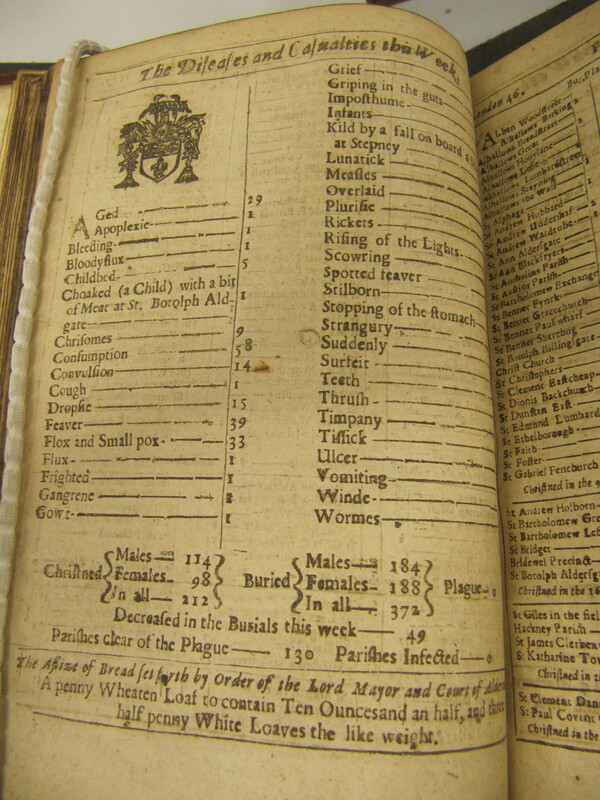 The Diseases and Casualties this Week
Aged 29
Apoplexie 1
Bleeding 1
Bloodyflux 1
Childbed 5
Choaked (a Child) with a bit
of Meat at St. Botolph Ald-
gate 1
Chrisomes 9
Consumption 58
Convulsion 14
Cough 1
Dropsie 15
Feaver 39
Flox and Small pox 33
Flux 1
Frighted 1
Gangrene 2
Gowt 1
Grief
Griping in the guts
Imposthume
Infants
Kild by a fall on board a
at Stepney
Lunatick
Measles
Overlaid
Plurisie
Rickets
Rising of the Lights
Scowring
Spotted feaver
Stilborn
Stopping of the stomach
Strangury
Suddenly
Surfeit
Teeth
Thrush
Timpany
Tissick
Ulcer
Vomiting
Winde
Wormes
Christned Males 114 Females 98 In all 212 Buried Males 184 Females 188 In all 372 Plague 0
Decreased in the Burials this week 49
Parishes clear of the Plague 130 Parishes Infected 0
The Assize of Bread set forth by Order of the Lord Mayor and Court of
A penny Wheaten Loaf to contain Ten Ounces and an half, and three
half penny White Loaves the like weight.
London 46.
Alban Woodstreet
Alhallows Barking
Alhallows Breadstreet
Alhallows Great
Alhallows Honylane
Alhallows Less
Alhallows Lumbardstreet
Alhallows Stayning
Alhallows the Wall
St Alphage
St Andrew Hubbard
St Andrew Undershaft
St Andrew Wardrobe
St Ann Aldersgate
St Ann Blackfryers
St Antholins Parish
St Austins Parish
St Bartholomew Exchange
St Bennet Fynck
St Bennet Gracechurch
St Bennet Paulswharf
St Bennet Sherehog
St Botolph Billingsgate
Christ Church
St Christophers
St Clement Eastcheap
St Dionis Backchurch
St Dunstan East
St Edmund Lumbard
St Ethelborough
St Faith
St Foster
St Gabriel Fenchurch
Christned in the 9
St Andrew Holborn
St Bartholomew Gre
St Bartholomew Les
St Bridget
Bridewel Precinct
St Botolph Aldersg
Christned in the 16
St Giles in the field
Hackney Parish
St James Clerken
St Katharine Tow
Christned in t
St Clement Dan
St Paul Covent
Christned in t